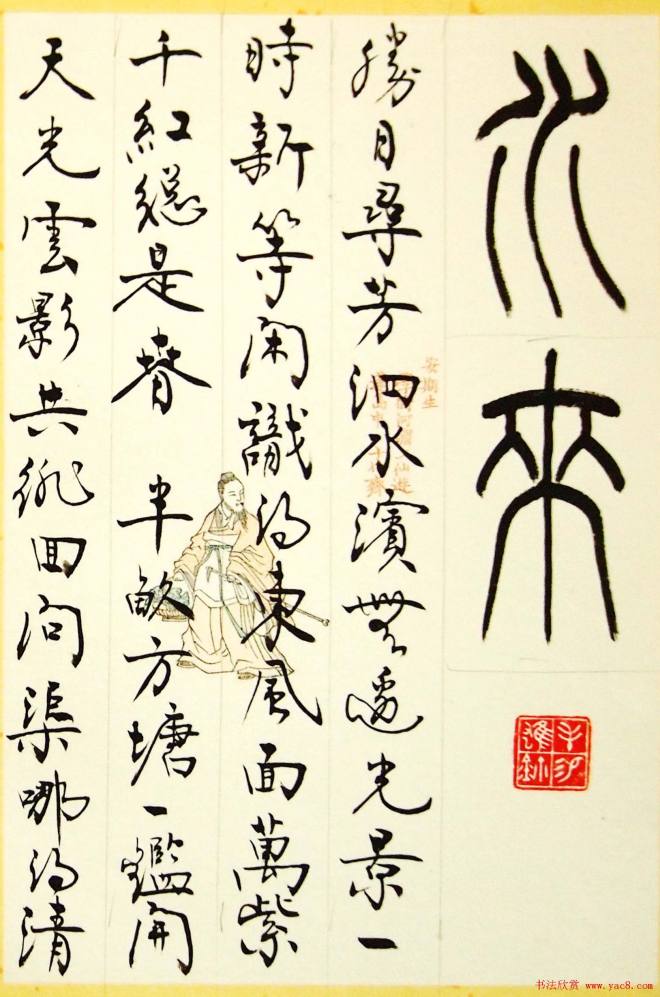 从來
勝日尋芳泗水濱無邊光景一
時新等閑識得東風面萬紫
千紅總是春 半畝方塘一鑑開
天光雲影共徘徊問渠哪得清
安期生
书法欣赏 www.yac8.com